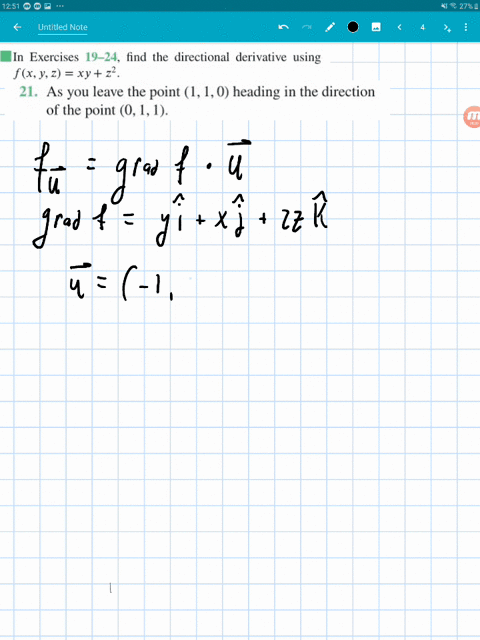 12:51
27%
Untitled Note
4
In Exercises 19–24, find the directional derivative using
f(x, y, z) = xy + z².
21. As you leave the point (1, 1, 0) heading in the direction
of the point (0, 1, 1).
f_u⃗ = grad f · u⃗
grad f = y î + x ĵ + 2z k̂
u⃗ = (-1,